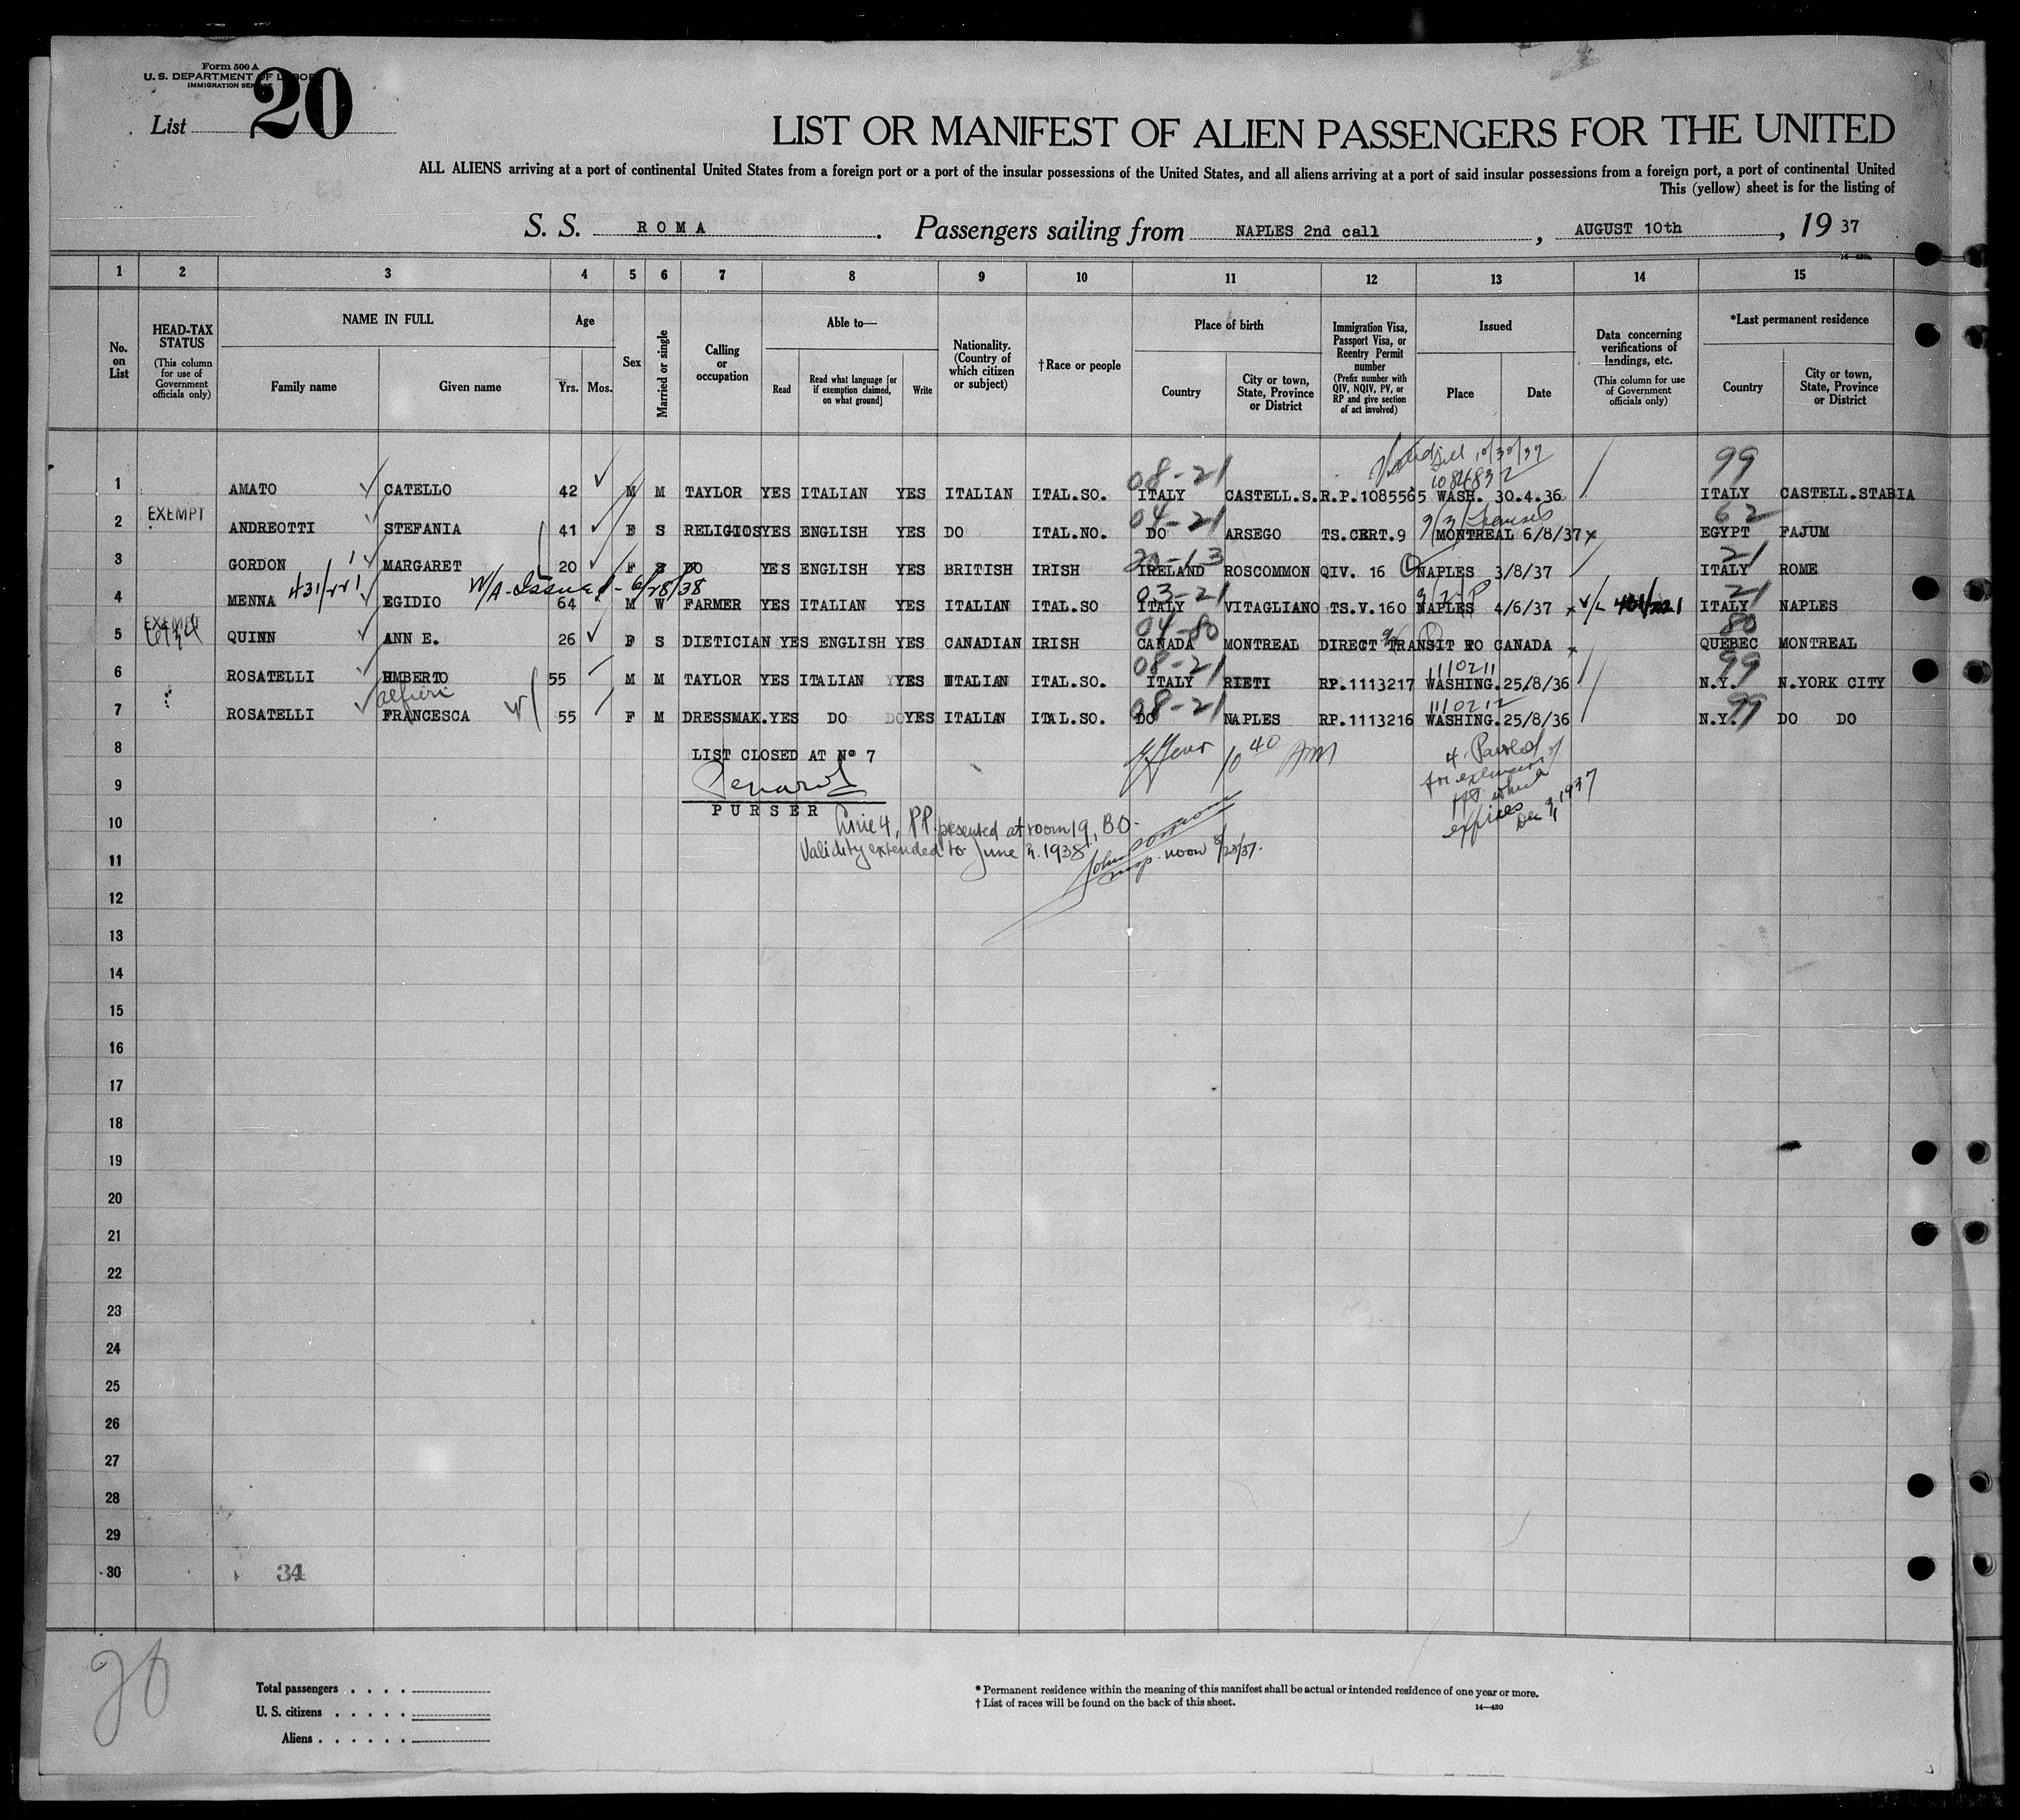 Form 500 A
U. S. DEPARTMENT OF LABOR
IMMIGRATION SERVICE
List 20
LIST OR MANIFEST OF ALIEN PASSENGERS FOR THE UNITED
ALL ALIENS arriving at a port of continental United States from a foreign port or a port of the insular possessions of the United States, and all aliens arriving at a port of said insular possessions from a foreign port, a port of continental United
This (yellow) sheet is for the listing of
S. S. ROMA. Passengers sailing from NAPLES 2nd call, AUGUST 10th, 19 37
14-430a
1 2 3 4 5 6 7 8 9 10 11 12 13 14 15
No. on List
HEAD-TAX STATUS
(This column for use of Government officials only)
NAME IN FULL
Family name
Given name
Age
Yrs. Mos.
Sex
Married or single
Calling or occupation
Able to—
Read
Read what language [or if exemption claimed, on what ground]
Write
Nationality. (Country of which citizen or subject)
† Race or people
Place of birth
Country
City or town, State, Province or District
Immigration Visa, Passport Visa, or Reentry Permit number
(Prefix number with QIV, NQIV, PV, or RP and give section of act involved)
Issued
Place
Date
Data concerning verifications of landings, etc.
(This column for use of Government officials only)
*Last permanent residence
Country
City or town, State, Province or District
10/30/37
08-21 1084832 99
1 AMATO CATELLO 42 M M TAYLOR YES ITALIAN YES ITALIAN ITAL.SO. ITALY CASTELL.S. R.P.1085565 WASH. 30.4.36 ITALY CASTELL.STABIA
EXEMPT 04-21 62
2 ANDREOTTI STEFANIA 41 F S RELIGIOS YES ENGLISH YES DO ITAL.NO. DO ARSEGO TS.CERT.9 MONTREAL 6/8/37 EGYPT FAJUM
20-13 21
3 GORDON MARGARET 20 F S DO YES ENGLISH YES BRITISH IRISH IRELAND ROSCOMMON QIV. 16 NAPLES 3/8/37 ITALY ROME
431/221 W/A-Issued-6/28/38 03-21 21
4 MENNA EGIDIO 64 M W FARMER YES ITALIAN YES ITALIAN ITAL.SO ITALY VITAGLIANO TS.V.160 NAPLES 4/6/37 V/L ITALY NAPLES
EXEMPT 04-80 80
5 QUINN ANN E. 26 F S DIETICIAN YES ENGLISH YES CANADIAN IRISH CANADA MONTREAL DIRECT TRANSIT TO CANADA QUEBEC MONTREAL
08-21 1110211 99
6 ROSATELLI UMBERTO 55 M M TAYLOR YES ITALIAN YES ITALIAN ITAL.SO. ITALY RIETI RP.1113217 WASHING. 25/8/36 N.Y. N.YORK CITY
alfieri 08-21 1110212 99
7 ROSATELLI FRANCESCA 55 F M DRESSMAK. YES DO DO YES ITALIAN ITAL.SO. DO NAPLES RP.1113216 WASHING. 25/8/36 N.Y. DO DO
8 LIST CLOSED AT No 7 10 40 AM 4. Paroled
for extension of
9 PP which
PURSER expires Dec 3, 1937
10 Line 4, PP. presented at room 19, B.O.
11 Validity extended to June 3. 1938. 8/23/37.
12
13
14
15
16
17
18
19
20
21
22
23
24
25
26
27
28
29
30 34
20
Total passengers . . . .
U. S. citizens . . . . .
Aliens . . . . . .
* Permanent residence within the meaning of this manifest shall be actual or intended residence of one year or more.
† List of races will be found on the back of this sheet.
14—430